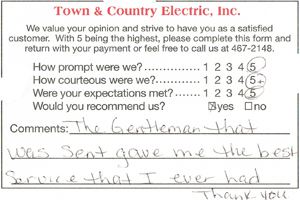 Town & Country Electric, Inc.
We value your opinion and strive to have you as a satisfied
customer. With 5 being the highest, please complete this form and
return with your payment or feel free to call us at 467-2148.
How prompt were we?.............. 1 2 3 4 5
How courteous were we?........... 1 2 3 4 5+
Were your expectations met?...... 1 2 3 4 5
Would you recommend us? ☒yes ☐no
Comments: The Gentleman that
was sent gave me the best
Service that I ever had
Thank you